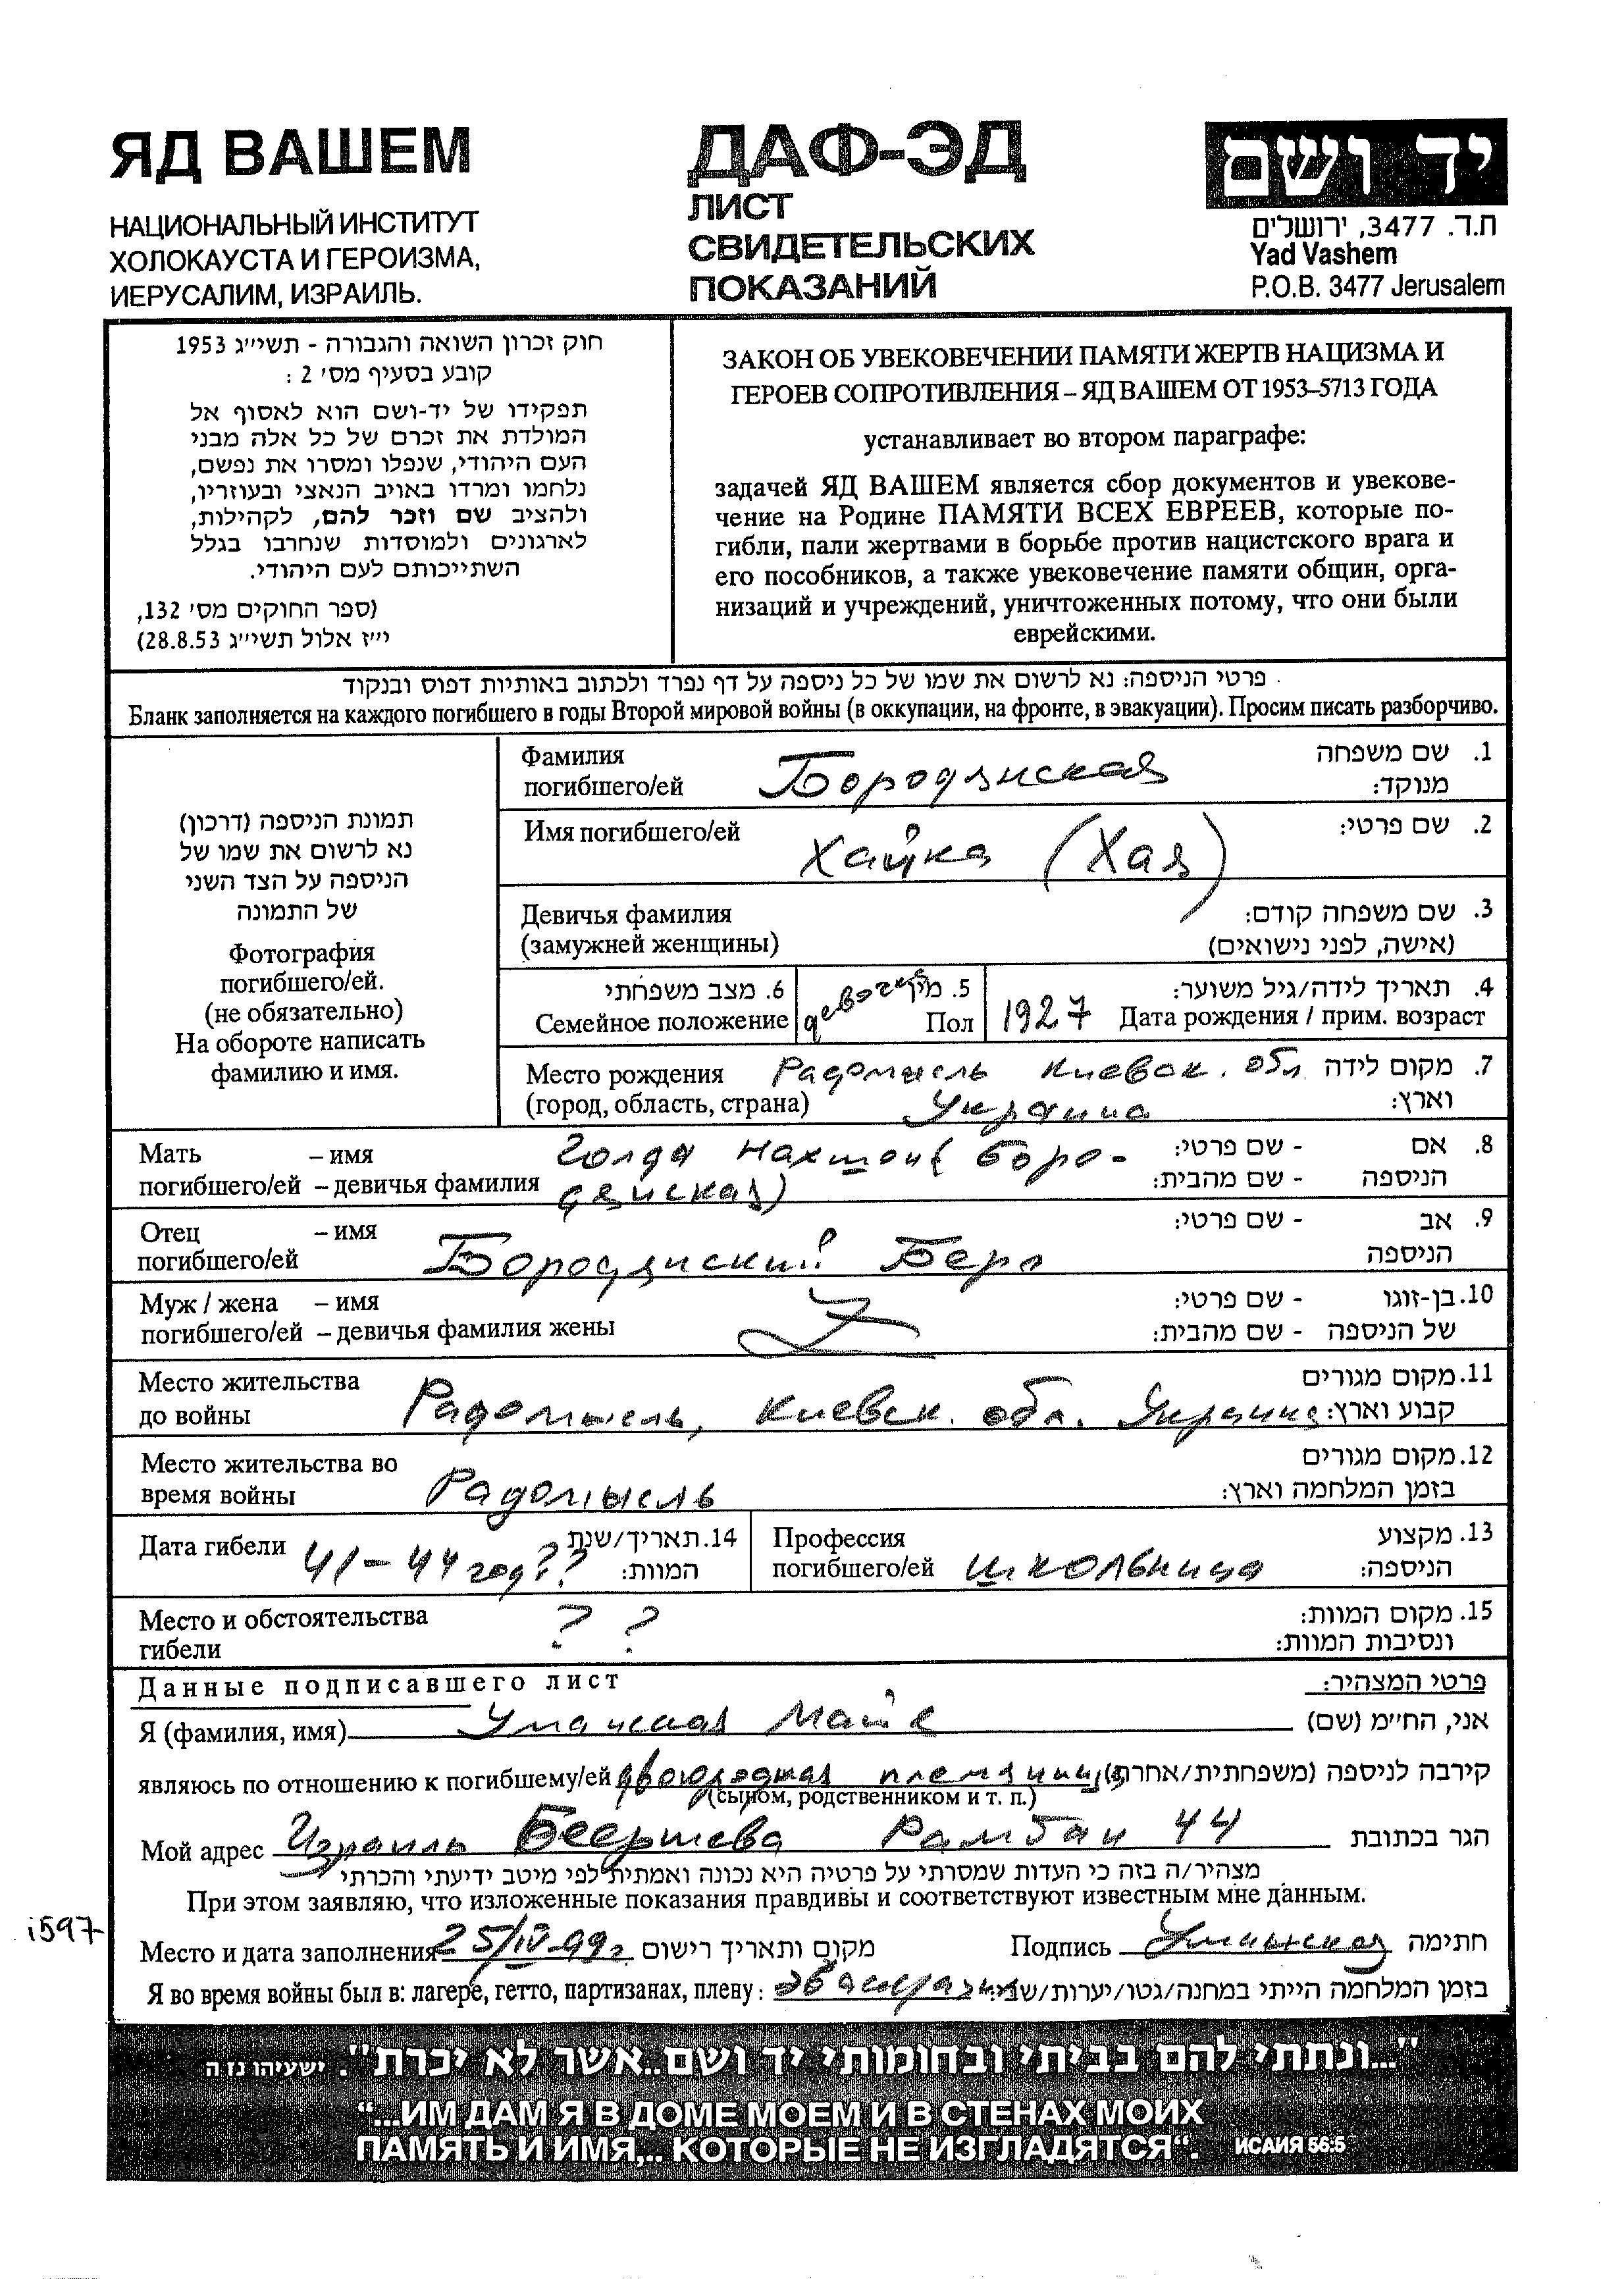 ЯД ВАШЕМ
НАЦИОНАЛЬНЫЙ ИНСТИТУТ
ХОЛОКАУСТА И ГЕРОИЗМА,
ИЕРУСАЛИМ, ИЗРАИЛЬ.
ДАФ-ЭД
ЛИСТ
СВИДЕТЕЛЬСКИХ
ПОКАЗАНИЙ
יד ושם
ת.ד. 3477, ירושלים
Yad Vashem
P.O.B. 3477 Jerusalem
חוק זכרון השואה והגבורה - תשי״ג 1953
קובע בסעיף מס׳ 2 :
תפקידו של יד-ושם הוא לאסוף אל
המולדת את זכרם של כל אלה מבני
העם היהודי, שנפלו ומסרו את נפשם,
נלחמו ומרדו באויב הנאצי ובעוזריו,
ולהציב שם וזכר להם, לקהילות,
לארגונים ולמוסדות שנחרבו בגלל
השתייכותם לעם היהודי.
(ספר החוקים מס׳ 132,
י״ז אלול תשי״ג 28.8.53)
ЗАКОН ОБ УВЕКОВЕЧЕНИИ ПАМЯТИ ЖЕРТВ НАЦИЗМА И
ГЕРОЕВ СОПРОТИВЛЕНИЯ – ЯД ВАШЕМ ОТ 1953–5713 ГОДА
устанавливает во втором параграфе:
задачей ЯД ВАШЕМ является сбор документов и увекове-
чение на Родине ПАМЯТИ ВСЕХ ЕВРЕЕВ, которые по-
гибли, пали жертвами в борьбе против нацистского врага и
его пособников, а также увековечение памяти общин, орга-
низаций и учреждений, уничтоженных потому, что они были
еврейскими.
פרטי הניספה: נא לרשום את שמו של כל ניספה על דף נפרד ולכתוב באותיות דפוס ובנקוד
Бланк заполняется на каждого погибшего в годы Второй мировой войны (в оккупации, на фронте, в эвакуации). Просим писать разборчиво.
תמונת הניספה (דרכון)
נא לרשום את שמו של
הניספה על הצד השני
של התמונה
Фотография
погибшего/ей.
(не обязательно)
На обороте написать
фамилию и имя.
Фамилия
погибшего/ей Бородянская
1. שם משפחה
מנוקד:
Имя погибшего/ей Хайка (Хая)
2. שם פרטי:
Девичья фамилия
(замужней женщины)
3. שם משפחה קודם:
(אישה, לפני נישואים)
6. מצב משפחתי
Семейное положение
5. מין
Пол девочка
4. תאריך לידה/גיל משוער:
1927 Дата рождения / прим. возраст
Место рождения Радомысль Киевск. обл
(город, область, страна) Украина
7. מקום לידה
וארץ:
Мать – имя Голда Нахшон (Боро-
погибшего/ей – девичья фамилия дянская)
8. אם - שם פרטי:
הניספה - שם מהבית:
Отец – имя
погибшего/ей Бородянский Берл
9. אב - שם פרטי:
הניספה
Муж / жена – имя
погибшего/ей – девичья фамилия жены
10. בן-זוגו - שם פרטי:
של הניספה - שם מהבית:
Место жительства
до войны Радомысль, Киевск. обл. Украина
11. מקום מגורים
קבוע וארץ:
Место жительства во
время войны Радомысль
12. מקום מגורים
בזמן המלחמה וארץ:
Дата гибели 41–44 год??
14. תאריך/שנת
המוות:
Профессия
погибшего/ей школьница
13. מקצוע
הניספה:
Место и обстоятельства ? ?
гибели
15. מקום המוות:
ונסיבות המוות:
Данные подписавшего лист
פרטי המצהיר:
Я (фамилия, имя) Уманская Майя אני, החי״מ (שם)
являюсь по отношению к погибшему/ей двоюродная племянница קירבה לניספה (משפחתית/אחרת)
(сыном, родственником и т. п.)
Мой адрес Израиль Беершева Рамбан 44 הגר בכתובת
מצהיר/ה בזה כי העדות שמסרתי על פרטיה היא נכונה ואמתית לפי מיטב ידיעתי והכרתי
При этом заявляю, что изложенные показания правдивы и соответствуют известным мне данным.
i597
Место и дата заполнения 25/IV-99г מקום ותאריך רישום Подпись Уманская חתימה
Я во время войны был в: лагере, гетто, партизанах, плену: эвакуации בזמן המלחמה הייתי במחנה/גטו/יערות/שבי:
"...ונתתי להם בביתי ובחומותי יד ושם..אשר לא יכרת". ישעיהו נז ה
“...ИМ ДАМ Я В ДОМЕ МОЕМ И В СТЕНАХ МОИХ
ПАМЯТЬ И ИМЯ,.. КОТОРЫЕ НЕ ИЗГЛАДЯТСЯ“. ИСАИЯ 56:5